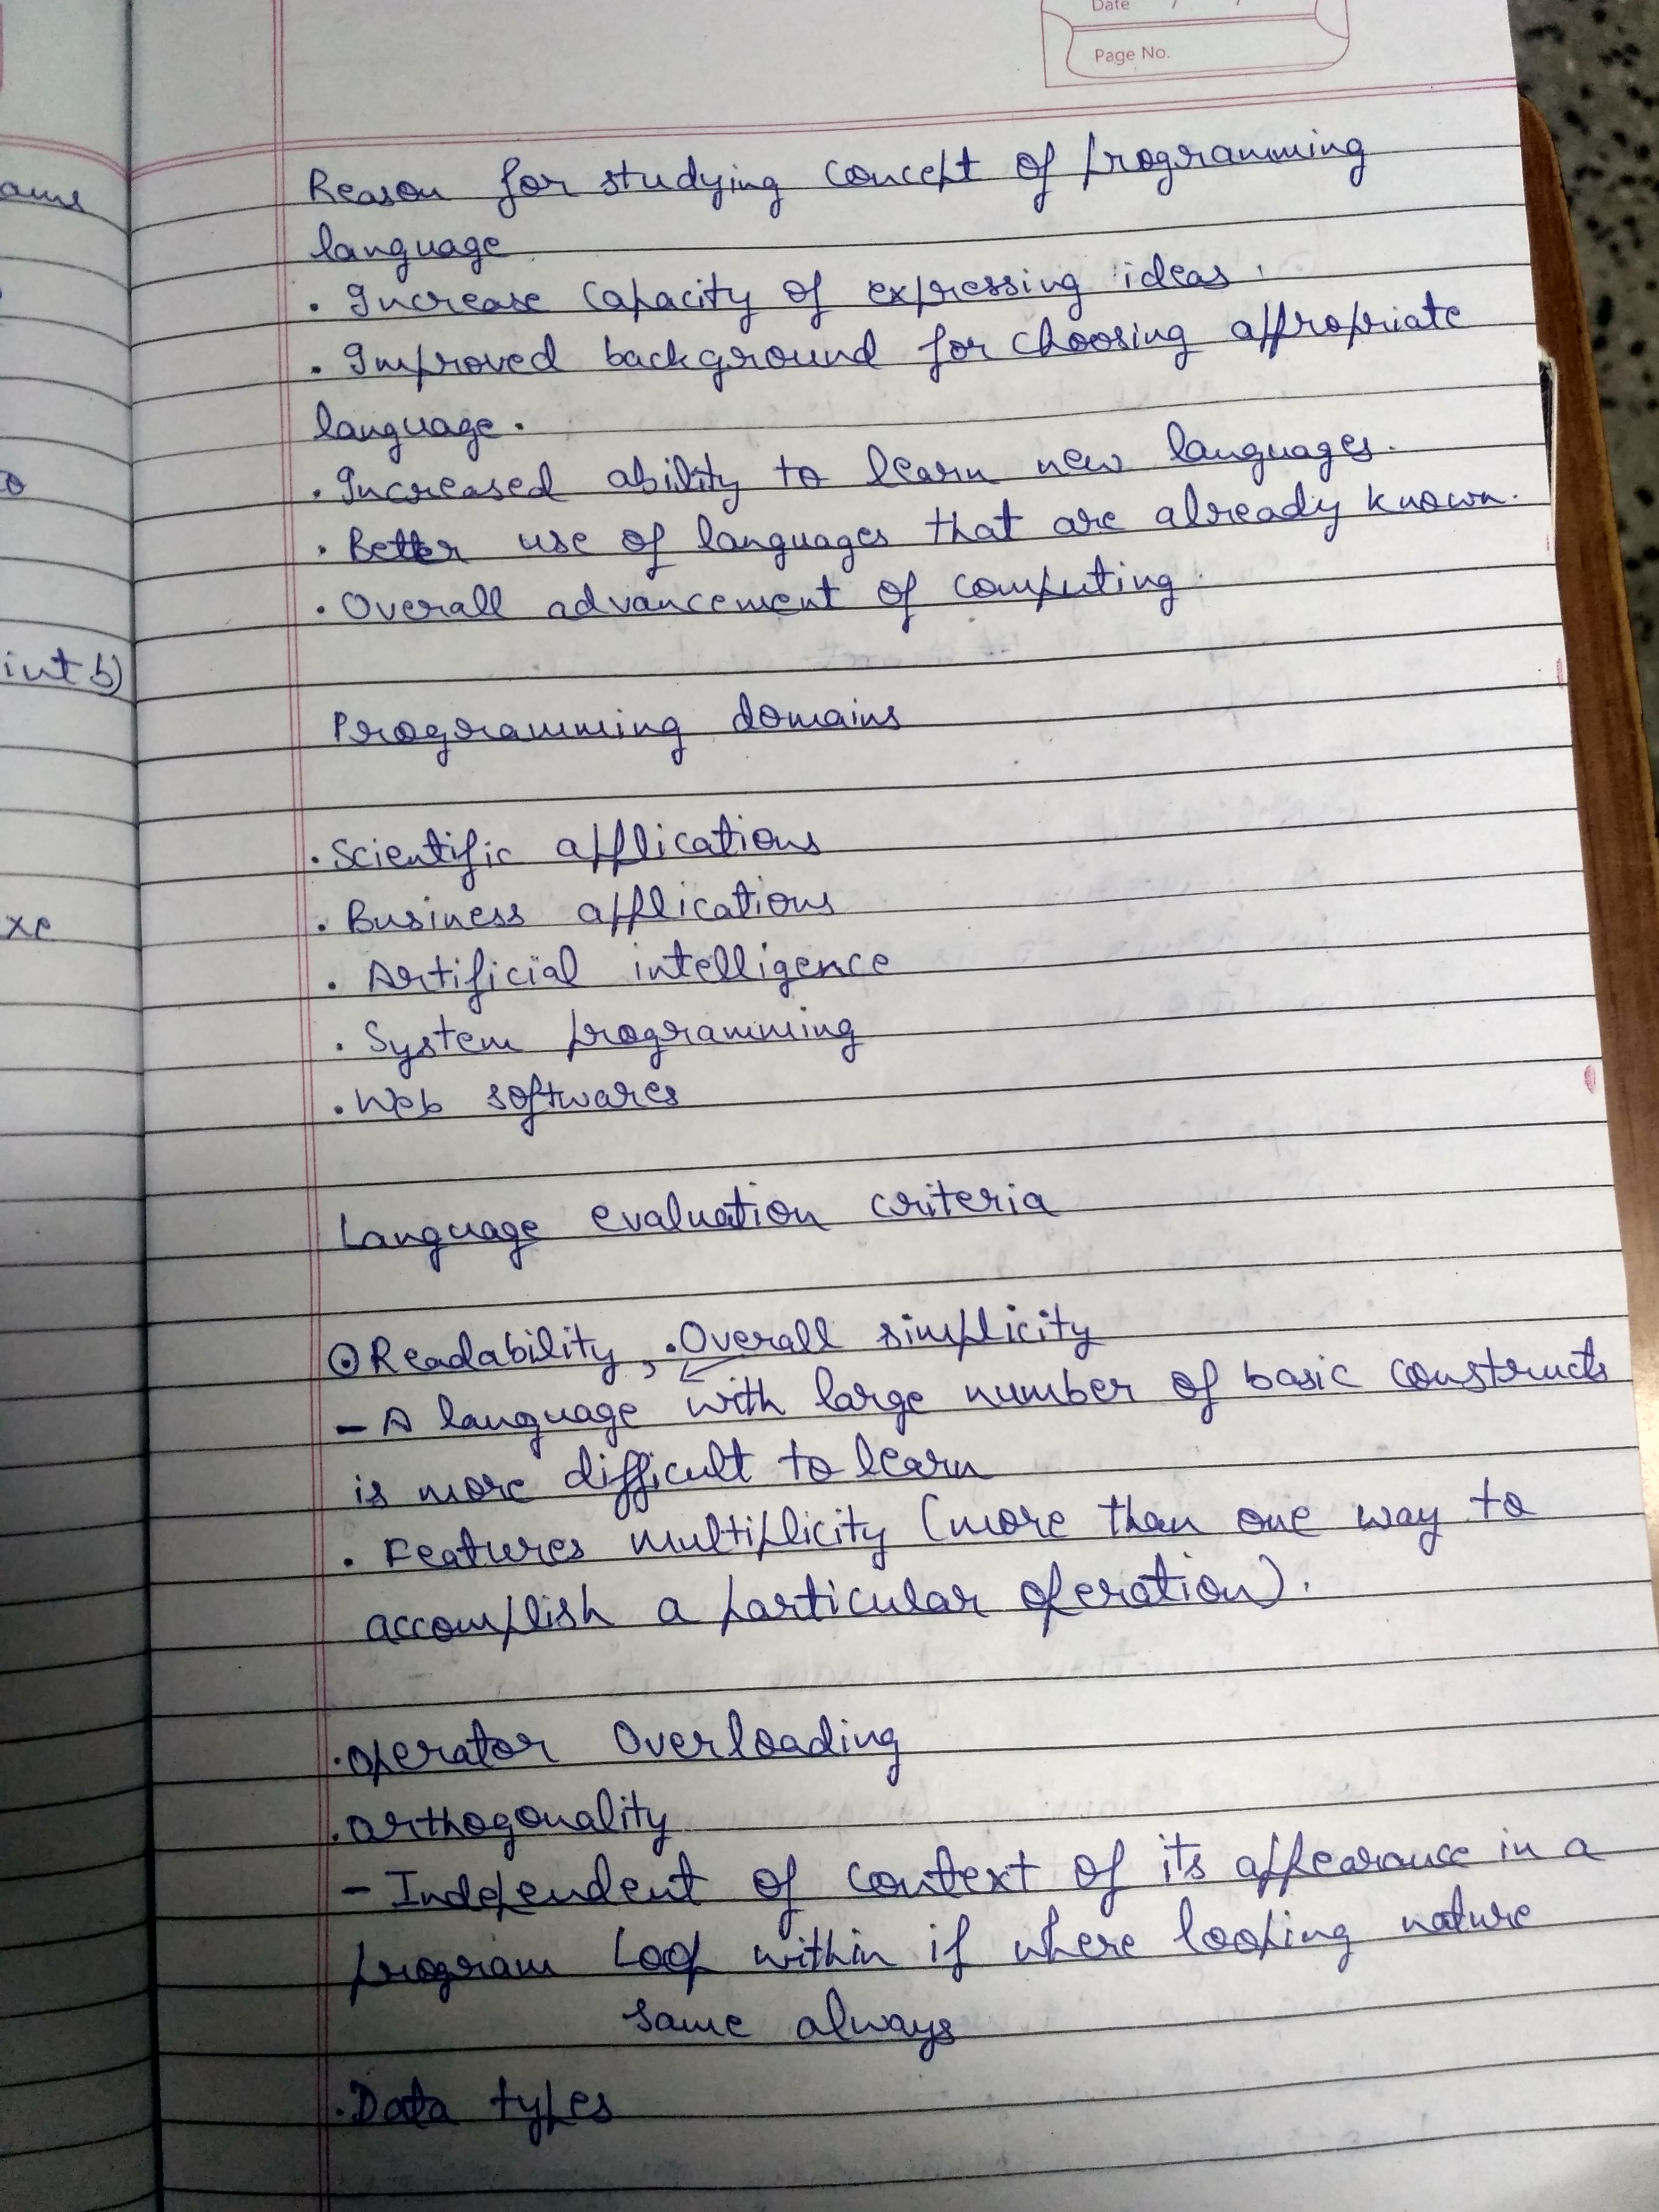 Date / /
Page No.
ams
int b)
xe
Reason for studying concept of programming
language
. Increase capacity of expressing ideas.
. Improved background for choosing appropriate
language.
. Increased ability to learn new languages.
. Better use of languages that are already known.
. Overall advancement of computing
Programming domains
. Scientific applications
. Business applications
. Artificial intelligence
. System programming
. Web softwares
Language evaluation criteria
⊙ Readability, . Overall simplicity
- A language with large number of basic constructs
is more difficult to learn
. Features multiplicity (more than one way to
accomplish a particular operation).
. Operator Overloading
. Orthogonality
- Independent of context of its appearance in a
program Loop within if where looping nature
same always
. Data types